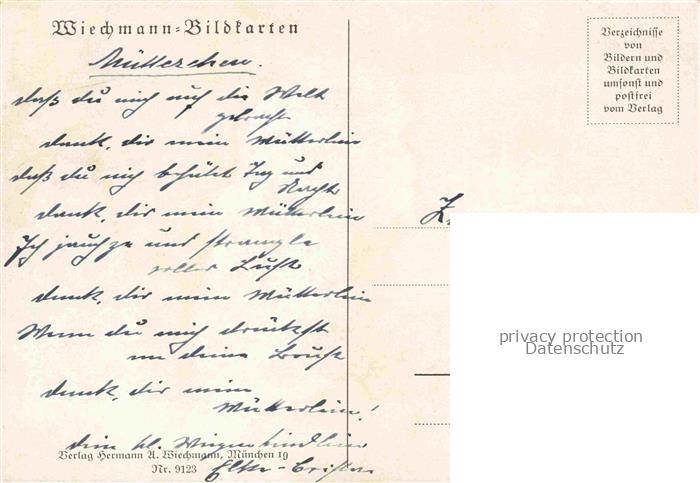 Wiechmann-Bildkarten
Mütterchen.
daß du mich auf die Welt
gebracht
dank, dir mein Mütterlein
daß du mich behütet Tag und
Nacht
dank, dir mein Mütterlein
Ich jauchze und strample
voller Lust
dank, dir mein Mütterlein
Wenn du mich drückst
an deine Brust
dank, dir mein
Mütterlein!
dein kl. Wiegenkindlein
Elke-
Verlag Hermann A. Wiechmann, München 19
Nr. 9123
Verzeichnisse
von
Bildern und
Bildkarten
umsonst und
postfrei
vom Verlag
privacy protection
Datenschutz